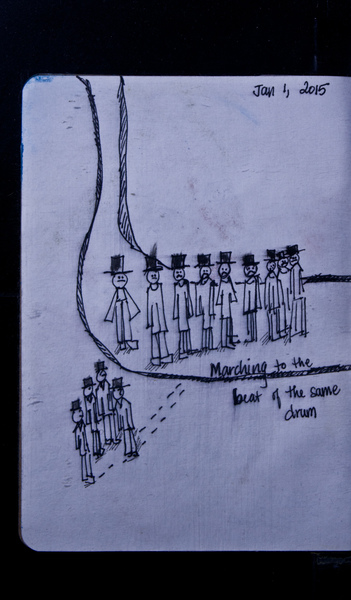 Jan 1, 2015
Marching to the
beat of the same
drum